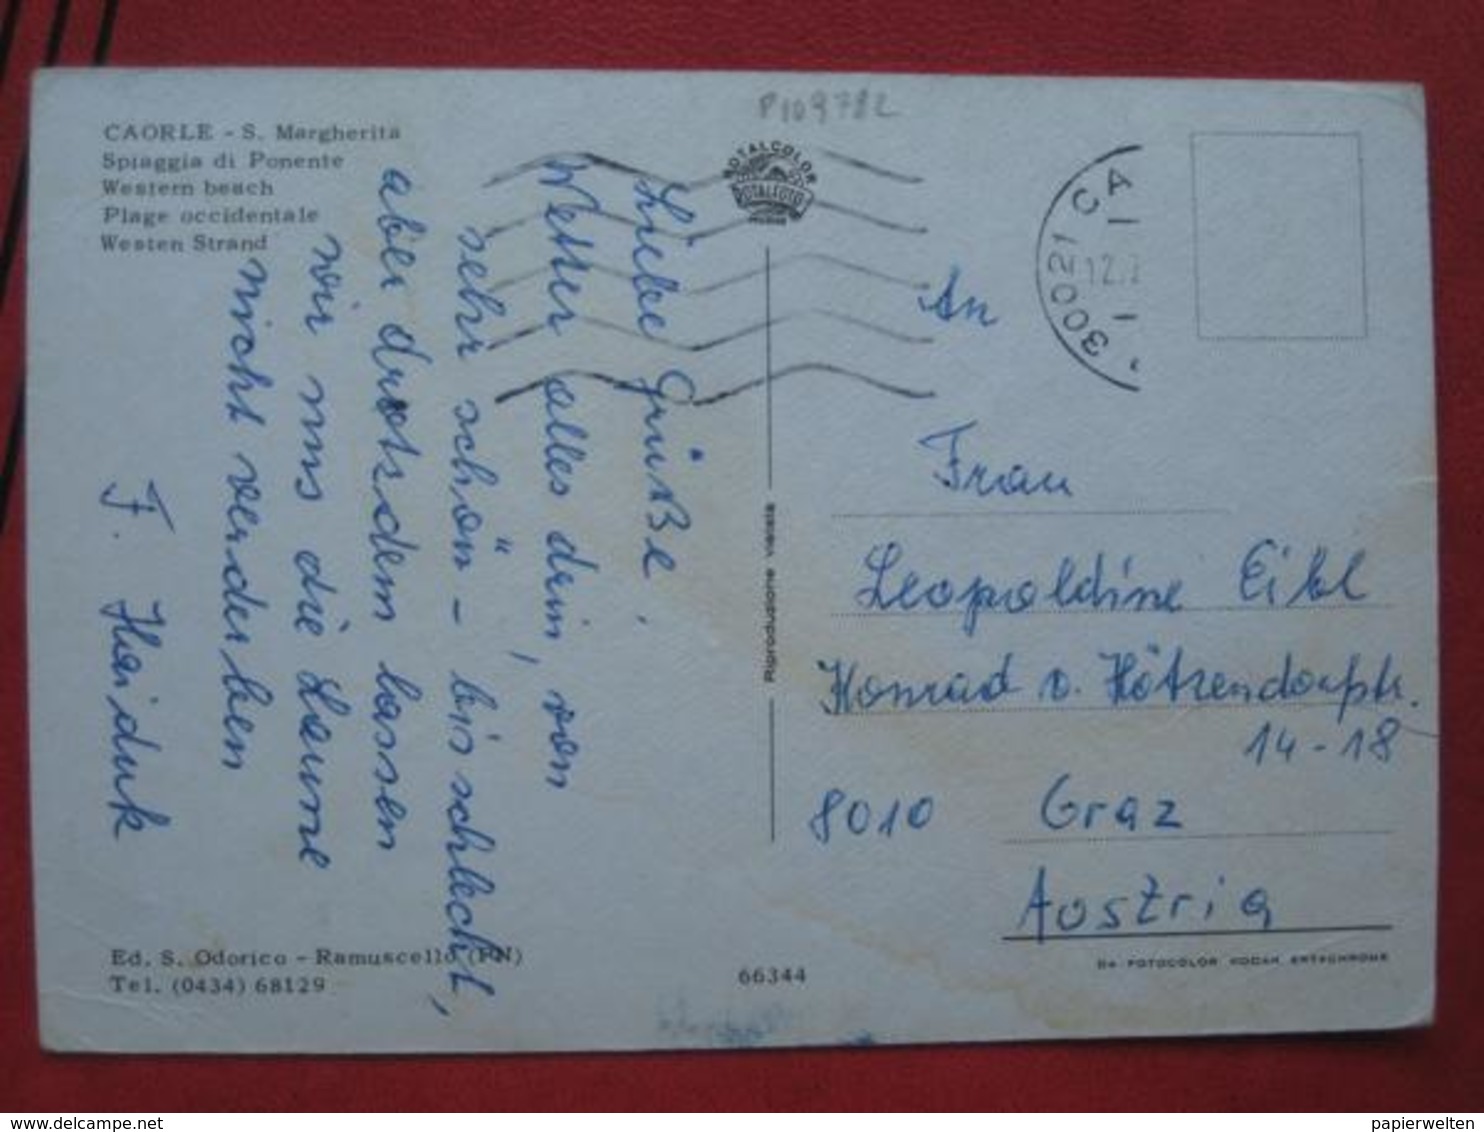 P109782
CAORLE - S. Margherita
Spiaggia di Ponente
Western beach
Plage occidentale
Westen Strand
Liebe Grüße,
Wetter alles drin, von
sehr schön - bis schlecht,
aber drotzdem lassen
wir uns die Laune
nicht verderben
F. Haiduk
Ed. S. Odorico - Ramuscello (PN)
Tel. (0434) 68129
66344
ROTALCOLOR
ROTALFOTO
Riproduzione vietata
30021 CA
12.
An
Frau
Leopoldine Eibl
Konrad v. Hötzendorfstr.
14-18
8010 Graz
Austria
Da FOTOCOLOR KODAK EKTACHROME
delcampe.net
papierwelten